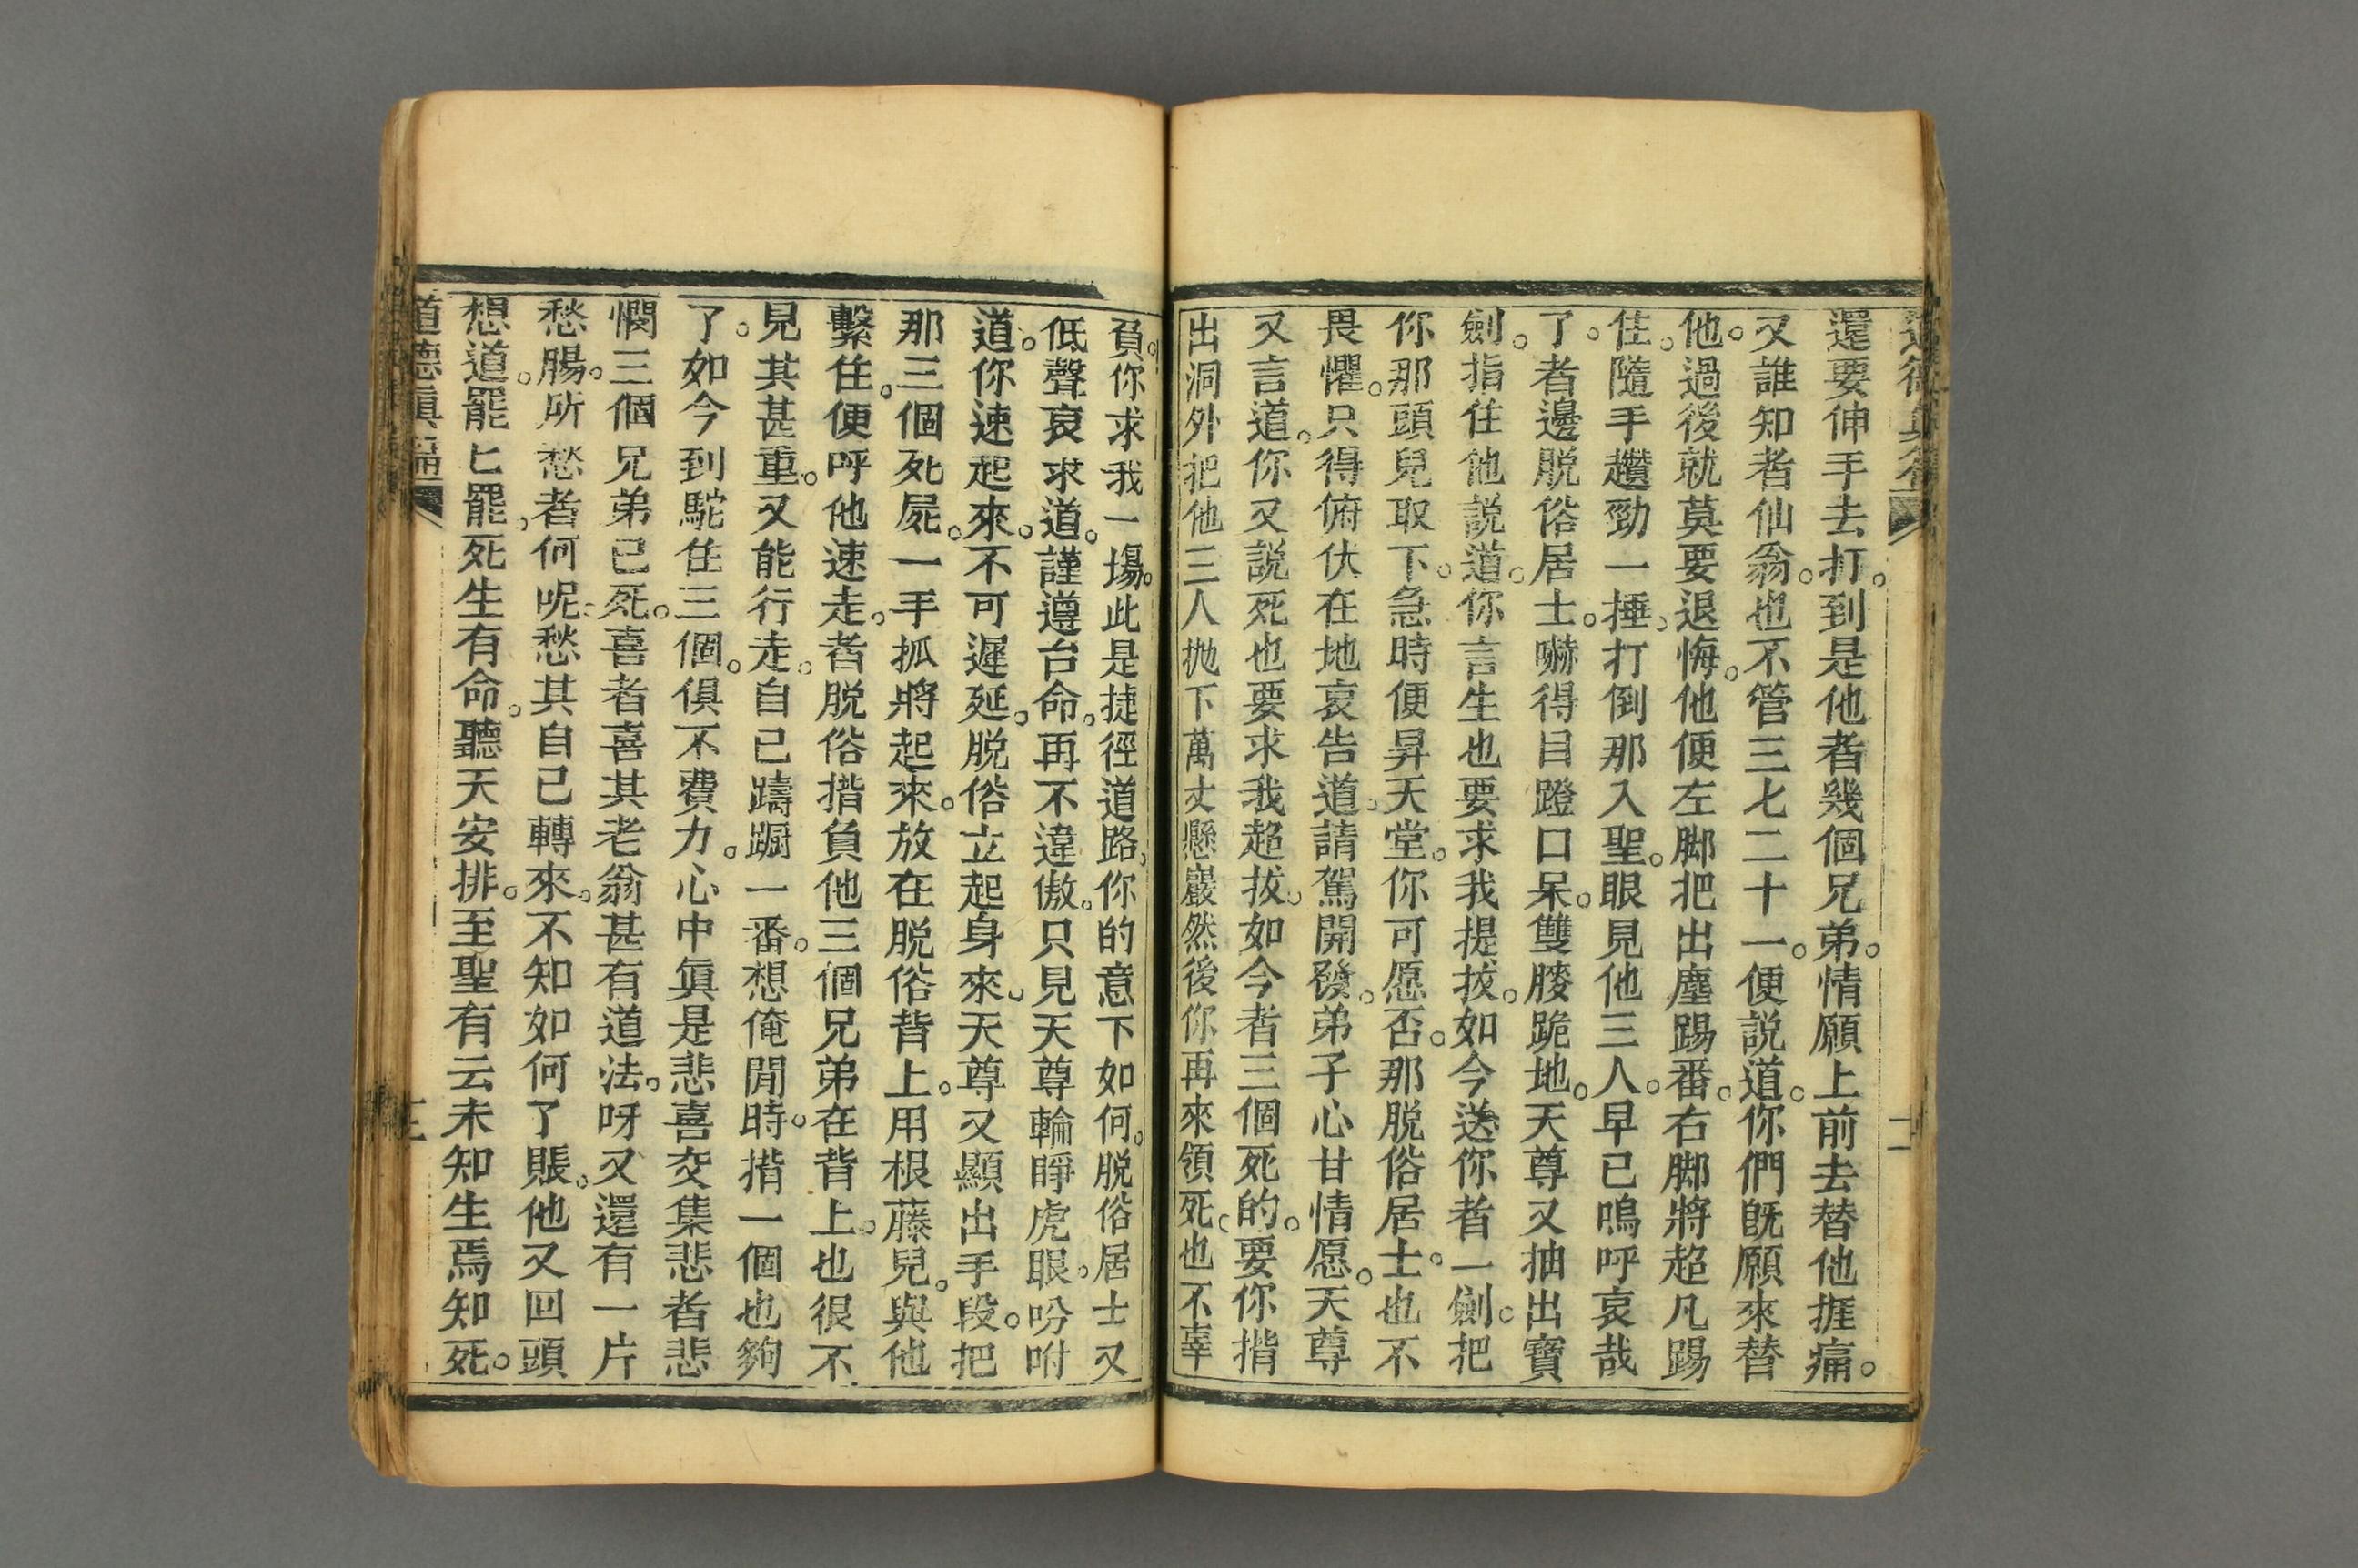 還要伸手去打。到是他者幾個兄弟。情願上前去替他捱痛。
又誰知者仙翁。也不管三七二十一。便説道。你們既願來替
他。過後就莫要退悔。他便左脚把出塵踢番。右脚將超凡踢
住。隨手趲勁一捶。打倒那入聖。眼見他三人。早已嗚呼哀哉
了。者邊脱俗居士。嚇得目蹬口呆。雙膝跪地。天尊又抽出寶
劍。指住他説道。你言生也要求我提拔。如今送你者一劍。把
你那頭兒取下。急時便昇天堂。你可愿否。那脱俗居士。也不
畏懼。只得俯伏在地哀告道。請駕開發。弟子心甘情愿。天尊
又言道。你又説死也要求我超拔。如今者三個死的。要你揹
出洞外把他三人拋下萬丈懸巖然後你再來領死。也不辜
負。你求我一塲。此是捷徑道路。你的意下如何。脱俗居士又
低聲哀求道。謹遵台命。再不違傲。只見天尊輪睜虎眼。吩咐
道。你速起來。不可遲延。脱俗立起身來。天尊又顯出手段。把
那三個死屍。一手抓將起來。放在脱俗背上。用根藤兒。與他
繫住。便呼他速走。者脱俗揹負他三個兄弟在背上。也很不
見其甚重。又能行走。自己躊蹰一番。想俺閒時。揹一個也夠
了。如今到駝住三個。俱不費力。心中眞是悲喜交集悲者悲
憫三個兄弟已死。喜者喜其老翁甚有道法。呀又還有一片
愁腸。所愁者何呢。愁其自己轉來。不知如何了賬。他又回頭
想道。罷匕罷。死生有命。聽天安排。至聖有云未知生焉知死。
道德眞